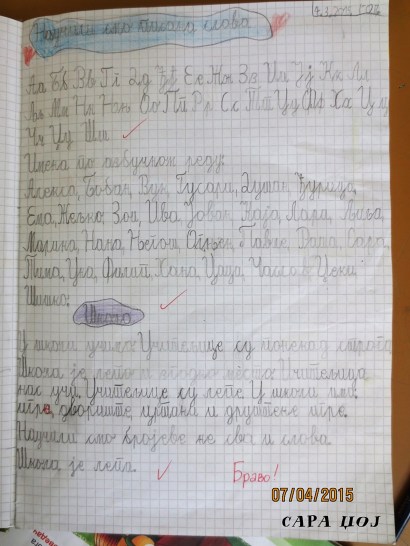 4.3.2015. год.
Научили смо писана слова
Аа Бб Вв Гг Дд Ђђ Ее Жж Зз Ии Јј Кк Лл
Љљ Мм Нн Њњ Оо Пп Рр Сс Тт Ћћ Уу Фф Хх Цц
Чч Џџ Шш
Имена по азбучном реду:
Алекса, Бобан, Вук, Гусари, Душан, Ђурица,
Ема, Жељко, Зоа, Ива, Јован, Каја, Лара, Љиља,
Марина, Нана, Његош, Огњен, Павле, Сара,
Тима, Ука, Филип, Хана, Цаца, Часлав, Џеки
Школа
У школи учимо. Учитељице су понекад строге.
Школа је лепо и место. Учитељица
нас учи. Учитељице су лепе. У школи има:
игре, двориште, цртање и друштвене игре.
Научили смо бројеве не све и слова.
Школа је лепа.
Браво!
07/04/2015
САРА ЏОЈ